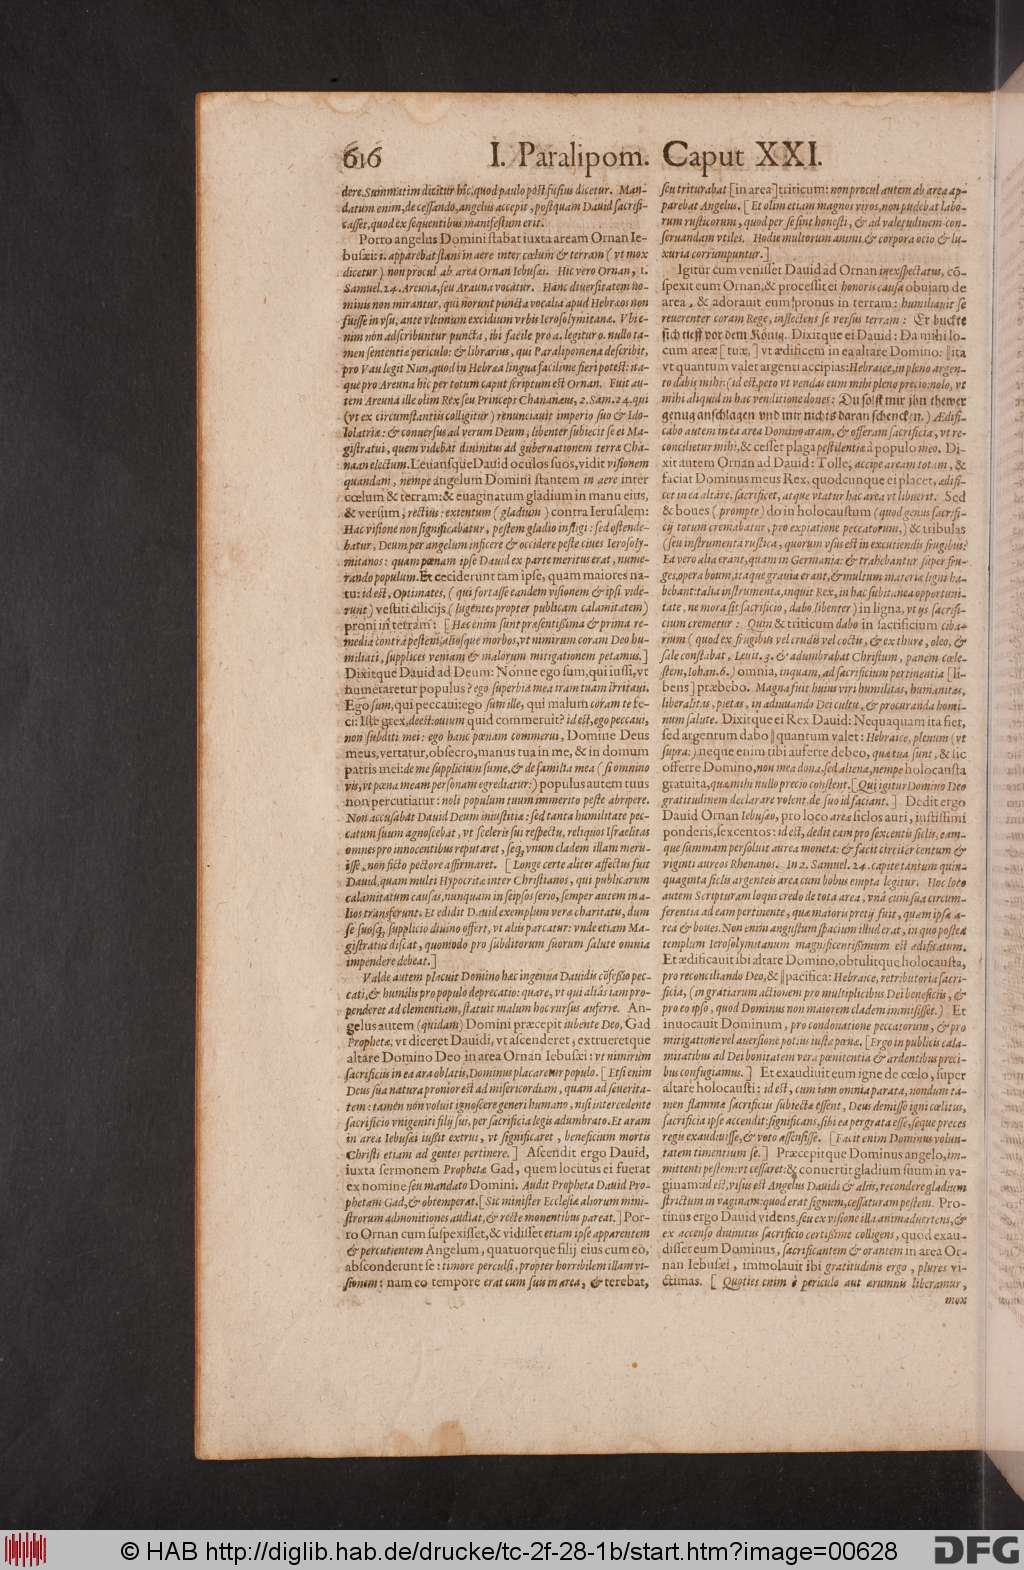 616 I. Paralipom. Caput XXI.
dere. Summatim dicitur hîc, quod paulo pòst fusius dicetur. Man-
datum enim, de cessando, angelus accepit, postquam Dauid sacrifi-
casset, quod ex sequentibus manifestum erit.
Porro angelus Domini stabat iuxta aream Ornan Ie-
busæi: 1. apparebat stans in aere inter cœlum & terram (vt mox
dicetur) non procul ab area Ornan Iebusæi. Hic vero Ornan, 1.
Samuel. 24. Areuna, seu Arauna vocatur. Hanc diuersitatem no-
minis non mirantur, qui nôrunt puncta vocalia apud Hebræos non
fuisse in vsu, ante vltimum excidium vrbis Ierosolymitanæ. Vbi e-
nim non adscribuntur puncta, ibi facile pro a. legitur o. nullo ta-
men sententiæ periculo: & librarius, qui Paralipomena describit,
pro Vau legit Nun, quod in Hebræa lingua facilime fieri potest: ita-
que pro Areuna hîc per totum caput scriptum est Ornan. Fuit au-
tem Areuna ille olim Rex seu Princeps Chananæus, 2. Sam. 24. qui
(vt ex circumstantiis colligitur) renunciauit imperio suo & Ido-
lolatriæ: & conuersus ad verum Deum, libenter subiecit se et Ma-
gistratui, quem videbat diuinitus ad gubernationem terræ Cha-
naan electum. Leuansque Dauid oculos suos, vidit visionem
quandam, nempe angelum Domini stantem in aere inter
cœlum & terram: & euaginatum gladium in manu eius,
& versum, rectius: extentum (gladium) contra Ierusalem:
Hac visione non significabatur, pestem gladio infligi: sed ostende-
batur, Deum per angelum inficere & occidere peste ciues Ierosoly-
mitanos: quam pœnam ipse Dauid ex parte meritus erat, nume-
rando populum. Et ceciderunt tam ipse, quam maiores na-
tu: id est, Optimates, (qui fortasse eandem visionem & ipsi vide-
runt) vestiti cilicijs (lugentes propter publicam calamitatem)
proni in terram: [Hæc enim sunt præsentissima & prima re-
media contra pestem, aliosque morbos, vt nimirum coram Deo hu-
miliati, supplices veniam & malorum mitigationem petamus.]
Dixitque Dauid ad Deum: Nonne ego sum, qui iussi, vt
numeraretur populus? ego superbia mea iram tuam irritaui.
Ego sum, qui peccaui: ego sum ille, qui malum coram te fe-
ci: Iste grex, de est: ouium quid commeruit? id est, ego peccaui,
non subditi mei: ego hanc pœnam commerui, Domine Deus
meus, vertatur, obsecro, manus tua in me, & in domum
patris mei: de me supplicium sume, & de familia mea (si omnino
vis, vt pœna meam personam egrediatur:) populus autem tuus
non percutiatur: noli populum tuum immerito peste abripere.
Non accusabat Dauid Deum iniustitiæ: sed tanta humilitate pec-
catum suum agnoscebat, vt sceleris sui respectu, reliquos Israelitas
omnes pro innocentibus reputaret, seq, vnum cladem illam meru-
isse, non ficto pectore affirmaret. [Longe certe aliter affectus fuit
Dauid, quam multi Hypocritæ inter Christianos, qui publicarum
calamitatum causas, nunquam in seipsos serio, semper autem in a-
lios transferunt. Et edidit Dauid exemplum veræ charitatis, dum
se suosq, supplicio diuino offert, vt aliis parcatur: vnde etiam Ma-
gistratus discat, quomodo pro subditorum suorum salute omnia
impendere debeat.]
Valde autem placuit Domino hæc ingenua Dauidis cōfessio pec-
cati, & humilis pro populo deprecatio: quare, vt qui aliàs iam pro-
penderet ad clementiam, statuit malum hoc rursus auferre. An-
gelus autem (quidam) Domini præcepit iubente Deo, Gad
Prophetæ, vt diceret Dauidi, vt ascenderet, extrueretque
altare Domino Deo in area Ornan Iebusæi: vt nimirum
sacrificiis in ea ara oblatis, Dominus placaretur populo. [Etsi enim
Deus sua natura pronior est ad misericordiam, quam ad seuerita-
tem: tamen non voluit ignoscere generi humano, nisi intercedente
sacrificio vnigeniti filij sui, per sacrificia legis adumbrato. Et aram
in area Iebusæi iussit extrui, vt significaret, beneficium mortis
Christi etiam ad gentes pertinere.] Ascendit ergo Dauid,
iuxta sermonem Prophetæ Gad, quem locutus ei fuerat
ex nomine seu mandato Domini. Audit Propheta Dauid Pro-
phetam Gad, & obtemperat. [Sic minister Ecclesiæ aliorum mini-
strorum admonitiones audiat, & recte monentibus pareat.] Por-
ro Ornan cum suspexisset, & vidisset etiam ipse apparentem
& percutientem Angelum, quatuorque filij eius cum eo,
absconderunt se: timore perculsi, propter horribilem illam vi-
sionem: nam eo tempore erat cum suis in area, & terebat,
seu triturabat [in area] triticum: non procul autem ab area ap-
parebat Angelus. [Et olim etiam magnos viros, non pudebat labo-
rum rusticorum, quod per se sint honesti, & ad valetudinem con-
seruandam vtiles. Hodie multorum animi & corpora ocio & lu-
xuria corrumpuntur.]
Igitur cum venisset Dauid ad Ornan inexspectatus, cō-
spexit eum Ornan, & processit ei honoris causa obuiam de
area, & adorauit eum pronus in terram: humiliauit se
reuerenter coram Rege, inflectens se versus terram: Er buckte
sich tieff vor dem König. Dixitque ei Dauid: Da mihi lo-
cum areæ [tuæ,] vt ædificem in ea altare Domino: ‖ita
vt quantum valet argenti accipias: Hebraice, in pleno argen-
to dabis mihi: (id est, peto vt vendas eum mihi pleno precio: nolo, vt
mihi aliquid in hac venditione dones: Du solst mir jhn thewer
genug anschlagen vnd mir nichts daran schencken.) Ædifi-
cabo autem in ea area Domino aram, & offeram sacrificia, vt re-
concilietur mihi, & cesset plaga pestilentiæ à populo meo. Di-
xit autem Ornan ad Dauid: Tolle, accipe aream totam, &
faciat Dominus meus Rex, quodcunque ei placet, ædifi-
cet in ea altare, sacrificet, atque vtatur hac area vt libuerit. Sed
& boues (prompte) do in holocaustum (quod genus sacrifi-
cij totum cremabatur, pro expiatione peccatorum,) & tribulas
(seu instrumenta rustica, quorum vsus est in excutiendis frugibus:
Ea vero alia erant, quam in Germania: & trahebantur super fru-
ges, opera boum, itaque grauia erant, & multum materiæ ligni ha-
bebant: talia instrumenta, inquit Rex, in hac subitanea opportuni-
tate, ne mora sit sacrificio, dabo libenter) in ligna, vt ijs sacrifi-
cium cremetur: Quin & triticum dabo in sacrificium ciba-
rium (quod ex frugibus vel crudis vel coctis, & ex thure, oleo, &
sale constabat, Leuit. 3. & adumbrabat Christum, panem cœle-
stem, Iohan. 6.) omnia, inquam, ad sacrificium pertinentia [li-
bens] præbebo. Magna fuit huius viri humilitas, humanitas,
liberalitas, pietas, in adiuuando Dei cultu, & procuranda homi-
num salute. Dixitque ei Rex Dauid: Nequaquam ita fiet,
sed argentum dabo ‖quantum valet: Hebraice, plenum (vt
supra:) neque enim tibi auferre debeo, quæ tua sunt, & sic
offerre Domino, non mea dona, sed aliena, nempe holocausta
gratuita, quæ mihi nullo precio constent. [Qui igitur Domino Deo
gratitudinem declarare volent, de suo id faciant.] Dedit ergo
Dauid Ornan Iebusæo, pro loco areæ siclos auri, iustissimi
ponderis, sexcentos: id est, dedit eam pro sexcentis siclis, eam-
que summam persoluit aurea moneta: & facit circiter centum &
viginti aureos Rhenanos. In 2. Samuel. 24. capite tantum quin-
quaginta siclis argenteis area cum bobus empta legitur. Hoc loco
autem Scripturam loqui credo de tota area, vnà cum sua circum-
ferentia ad eam pertinente, quæ maioris pretij fuit, quam ipsa a-
rea & boues. Non enim angustum spacium illud erat, in quo postea
templum Ierosolymitanum magnificentissimum est ædificatum.
Et ædificauit ibi altare Domino, obtulitque holocausta,
pro reconciliando Deo, & ‖pacifica: Hebraice, retributoria sacri-
ficia, (in gratiarum actionem pro multiplicibus Dei beneficiis, &
pro eo ipso, quod Dominus non maiorem cladem immisisset.) Et
inuocauit Dominum, pro condonatione peccatorum, & pro
mitigatione vel auersione potius iustæ pœnæ. [Ergo in publicis cala-
mitatibus ad Dei bonitatem vera pœnitentia & ardentibus preci-
bus confugiamus.] Et exaudiuit eum igne de cœlo, super
altare holocausti: id est, cum iam omnia parata, nondum ta-
men flammæ sacrificiis subiectæ essent, Deus demisso igni cœlitus,
sacrificia ipse accendit: significans, sibi ea pergrata esse, seque preces
regis exaudiuisse, & voto assensisse. [Facit enim Dominus volun-
tatem timentium se.] Præcepitque Dominus angelo, im-
mittenti pestem: vt cessaret: & conuertit gladium suum in va-
ginam: id est, visus est Angelus Dauidi & aliis, recondere gladium
strictum in vaginam: quod erat signum, cessaturam pestem. Pro-
tinus ergo Dauid videns, seu ex visione illa animaduertens, &
ex accenso diuinitus sacrificio certissime colligens, quod exau-
disset eum Dominus, sacrificantem & orantem in area Or-
nan Iebusæi, immolauit ibi gratitudinis ergo, plures vi-
ctimas. [Quoties enim è periculo aut ærumnis liberamur,
mox
© HAB http://diglib.hab.de/drucke/tc-2f-28-1b/start.htm?image=00628
DFG